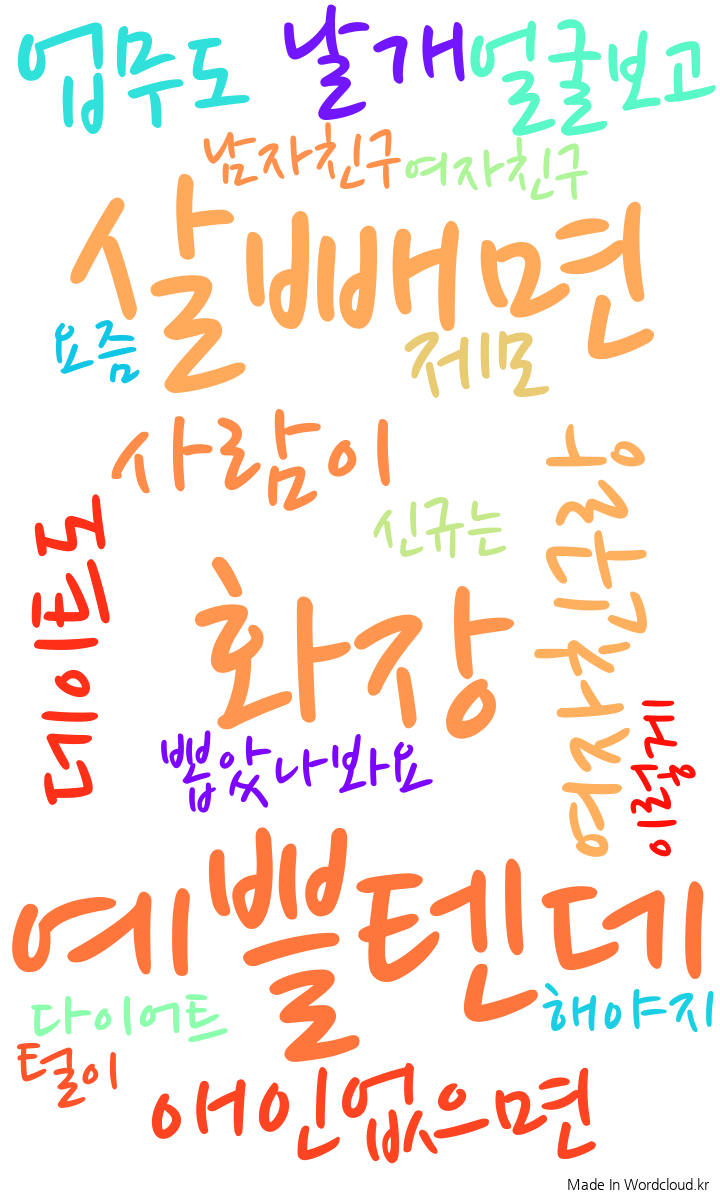 업무도 날개 얼굴보고
남자친구 여자친구
살빼면
요즘 제모
사람이
신규는
데이트도
여자친구랑
화장
이럴게
뽑았나봐요
예쁠텐데
다이어트 해야지
털이
애인없으면
Made In Wordcloud.kr